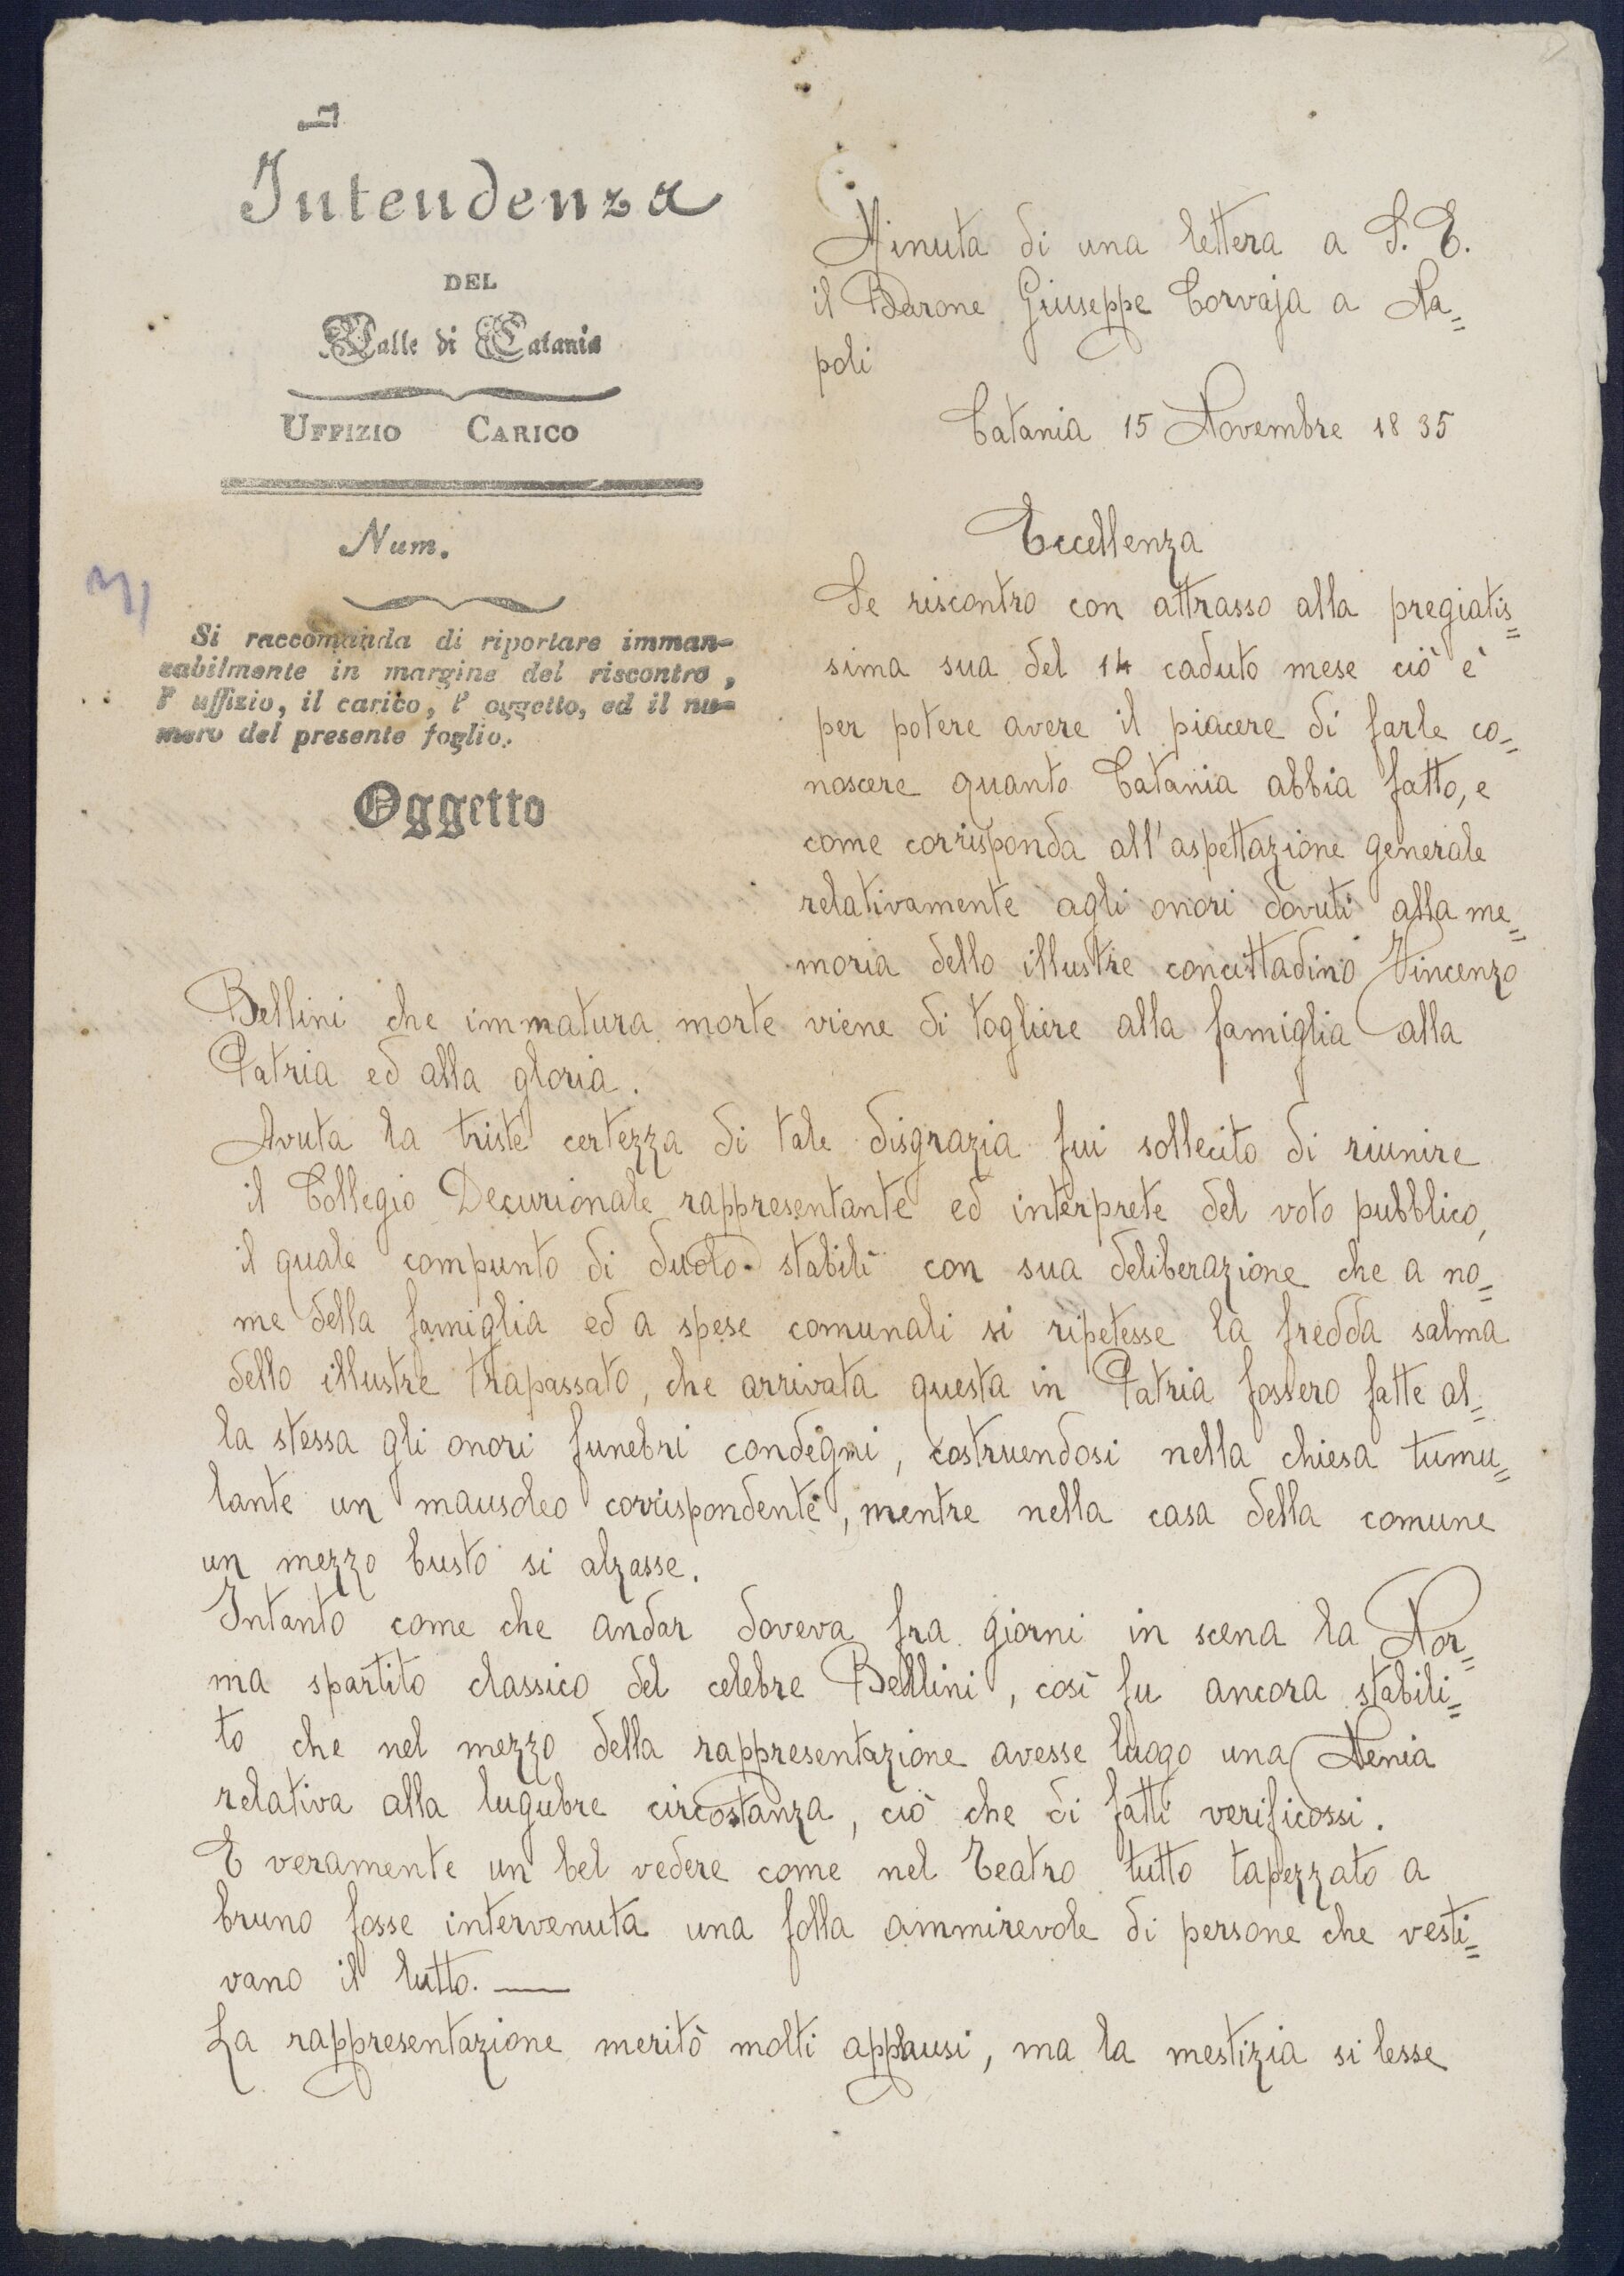 Intendenza
DEL
Valle di Catania
UFFIZIO CARICO
Num.
Si raccomanda di riportare imman-
cabilmente in margine del riscontro,
l' uffizio, il carico, l' oggetto, ed il nu-
mero del presente foglio.
Oggetto
Minuta di una lettera a S. E.
il Barone Giuseppe Corvaja a Na=
poli
Catania 15 Novembre 1835
Eccellenza
Se riscontro con attrasso alla pregiatis=
sima sua del 14 caduto mese ciò è
per potere avere il piacere di farle co=
noscere quanto Catania abbia fatto, e
come corrisponda all'aspettazione generale
relativamente agli onori dovuti alla me=
moria dello illustre concittadino Vincenzo
Bellini che immatura morte viene di togliere alla famiglia alla
Patria ed alla gloria.
Avuta la triste certezza di tale disgrazia fui sollecito di riunire
il Collegio Decurionale rappresentante ed interprete del voto pubblico,
il quale compunto di duolo stabilì con sua deliberazione che a no=
me della famiglia ed a spese comunali si ripetesse la fredda salma
dello illustre trapassato, che arrivata questa in Patria fossero fatte al=
la stessa gli onori funebri condegni, costruendosi nella chiesa tumu=
lante un mausoleo corrispondente, mentre nella casa della comune
un mezzo busto si alzasse.
Intanto come che andar doveva fra giorni in scena la Nor=
ma spartito classico del celebre Bellini, così fu ancora stabili=
to che nel mezzo della rappresentazione avesse luogo una Nenia
relativa alla lugubre circostanza, ciò che di fatti verificossi.
E veramente un bel vedere come nel Teatro tutto tapezzato a
bruno fosse intervenuta una folla ammirevole di persone che vesti=
vano il lutto. —
La rappresentazione meritò molti applausi, ma la mestizia si lesse